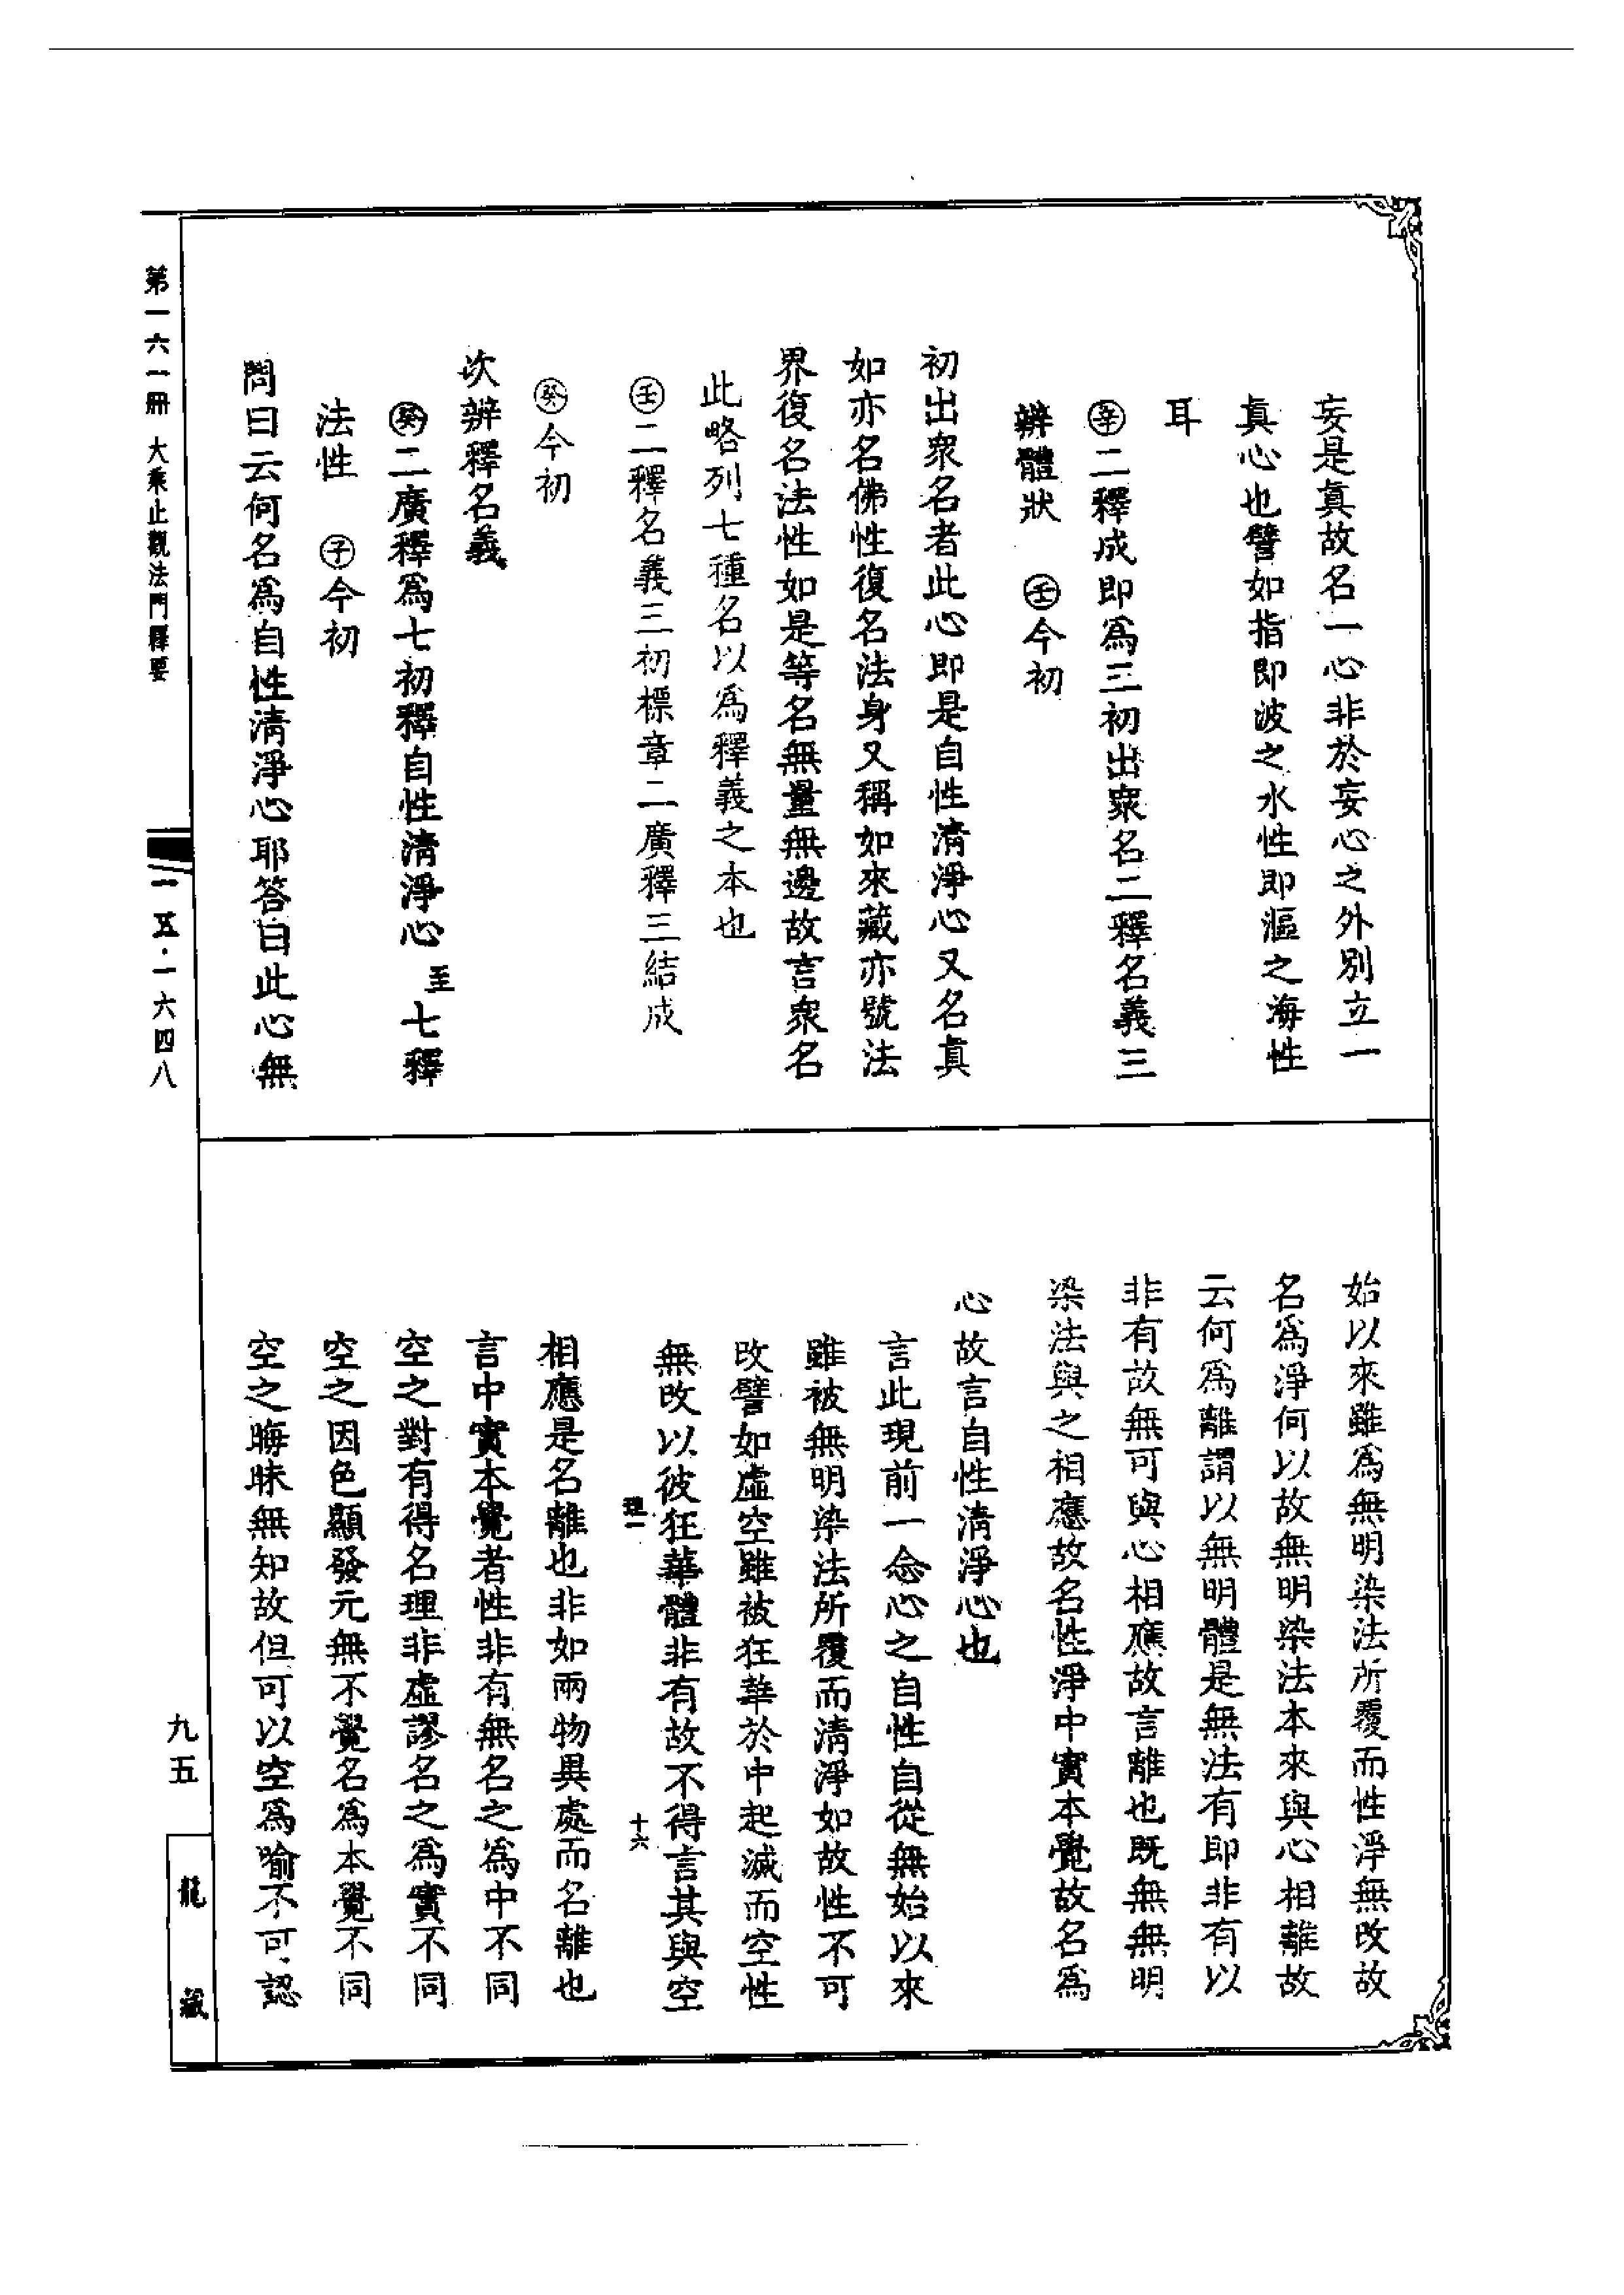 妄是真故名一心非於妄心之外別立一
真心也譬如指即波之水性即漚之海性
耳
㊛二釋成即為三初出眾名二釋名義三
辨體狀　壬今初
初出眾名者此心即是自性清淨心又名真
如亦名佛性復名法身又稱如來藏亦號法
界復名法性如是等名無量無邊故言眾名
此略列七種名以為釋義之本也
壬二釋名義三初標章二廣釋三結成
癸今初
次辨釋名義
癸二廣釋為七初釋自性清淨心至七釋
法性　子今初
問曰云何名為自性清淨心耶答曰此心無
始以來雖為無明染法所覆而性淨無改故
名為淨何以故無明染法本來與心相離故
云何為離謂以無明體是無法有即非有以
非有故無可與心相應故言離也既無無明
染法與之相應故名性淨中實本覺故名為
心故言自性清淨心也
言此現前一念心之自性自從無始以來
雖被無明染法所覆而清淨如故性不可
改譬如虛空雖被狂華於中起滅而空性
無改以彼狂華體非有故不得言其與空
理一
十六
相應是名離也非如兩物異處而名離也
言中實本覺者性非有無名之為中不同
空之對有得名理非虛謬名之為實不同
空之因色顯發元無不覺名為本覺不同
空之晦昧無知故但可以空為喻不可認
第一六一冊　大乘止觀法門釋要
一五·一六四八
九五
龍藏